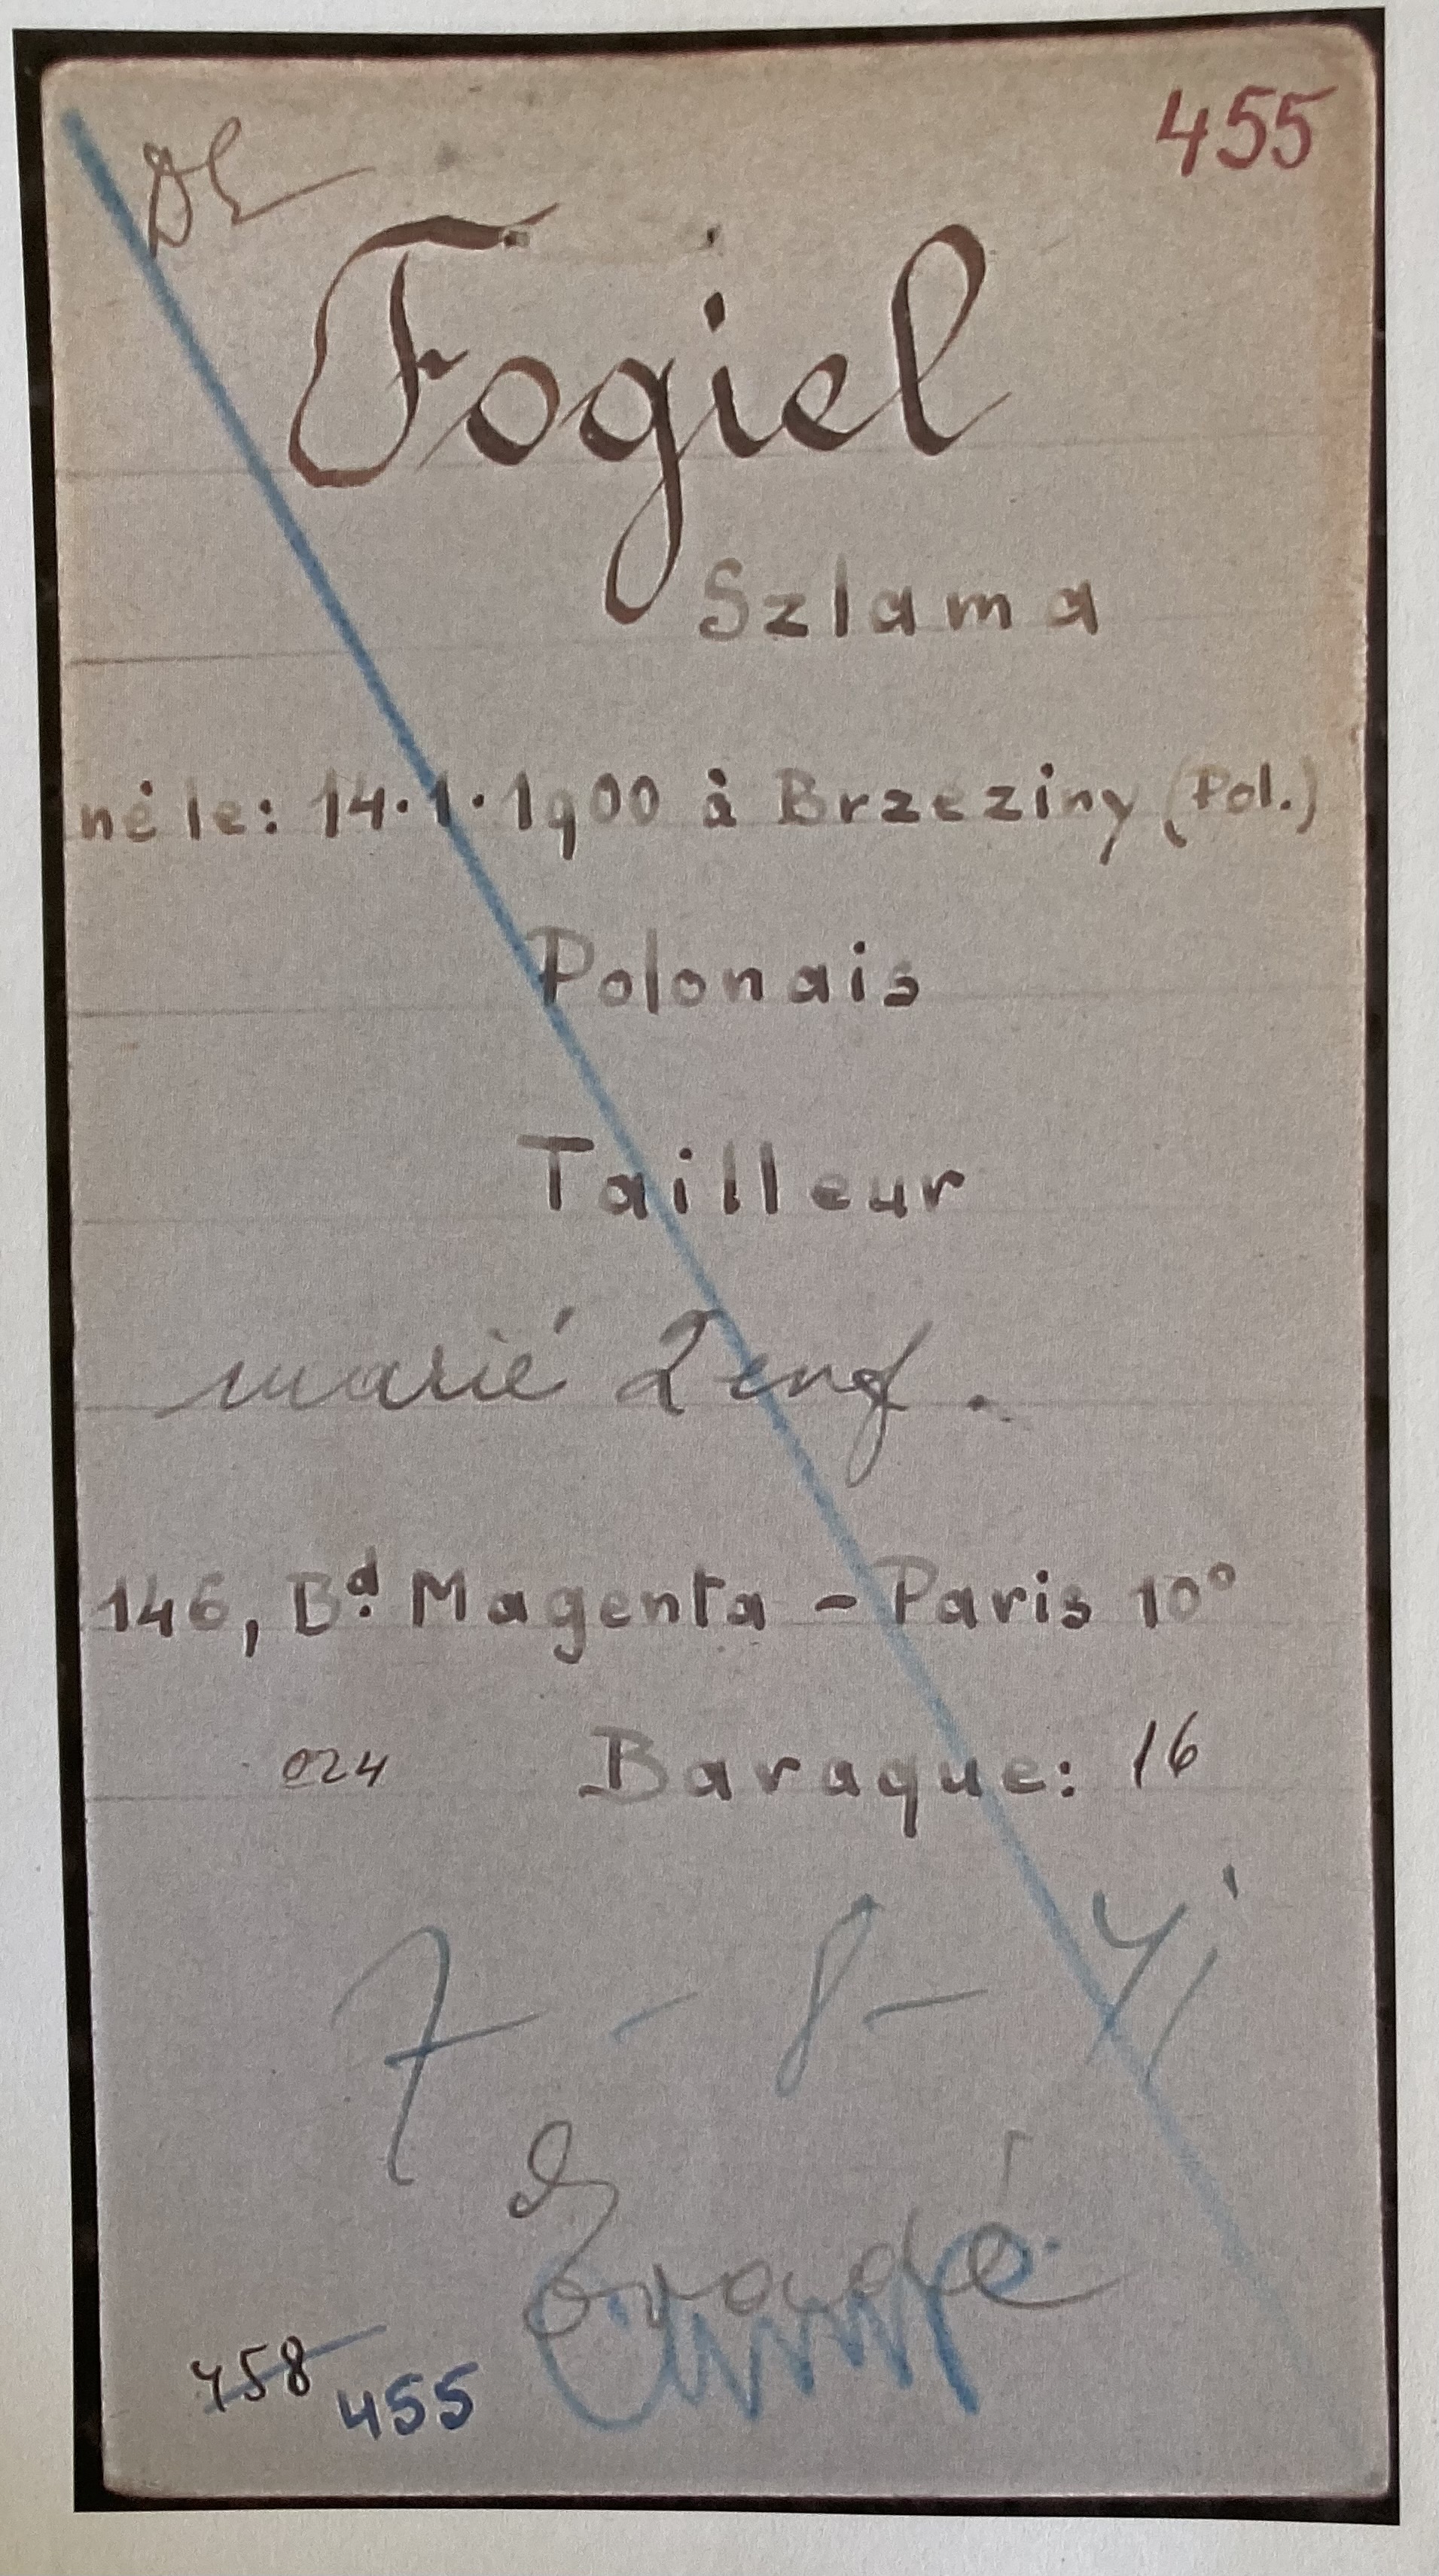 455
Fogiel
Szlama
né le: 14.1.1900 à Brzeziny (Pol.)
Polonais
Tailleur
marié 2 enf.
146, Bd. Magenta - Paris 10°
024 Baraque: 16
7 - 8 - 41
Evadé
458 455